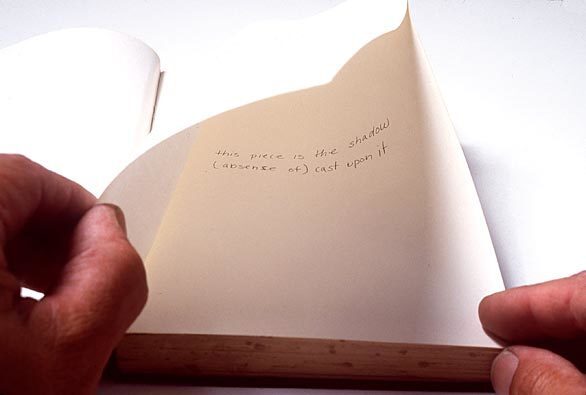 this piece is the shadow
(absense of) cast upon it